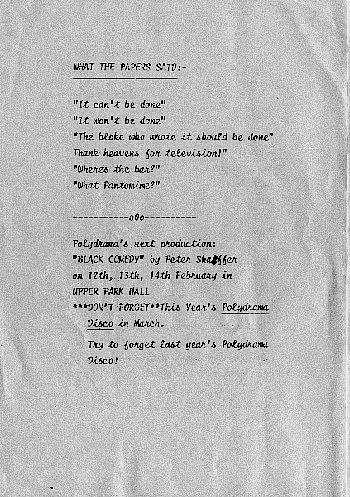 WHAT THE PAPERS SAID:-
"It can't be done"
"It won't be done"
"The bloke who wrote it should be done"
Thank heavens for television!"
"Wheres the bar?"
"What Pantomime?"
-----------o0o----------
Polydrama's next production:
"BLACK COMEDY" by Peter Shaffer
on 12th, 13th, 14th February in
UPPER PARK HALL
***DON'T FORGET**This Year's Polydrama
Disco in March.
Try to forget last year's Polydrama
Disco!